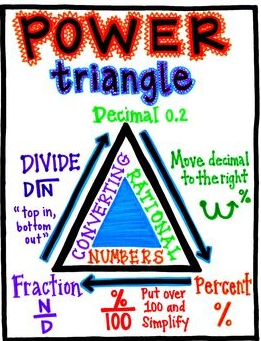 POWER
triangle
Decimal 0.2
DIVIDE
D√N
"top in,
bottom
out"
Move decimal
to the right
%
CONVERTING
RATIONAL
NUMBERS
Fraction
N
D
%
100
Put over
100 and
Simplify
Percent
%